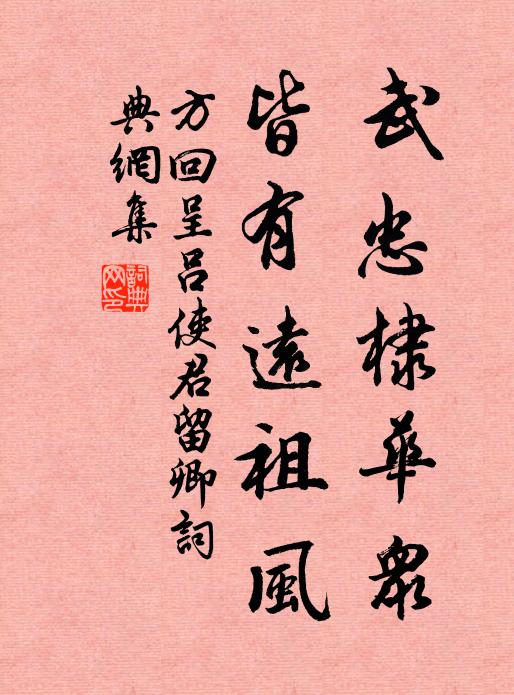 武忠棣華眾
皆有遠祖風
方回呈呂使君留卿詞
典網集
詞典網印